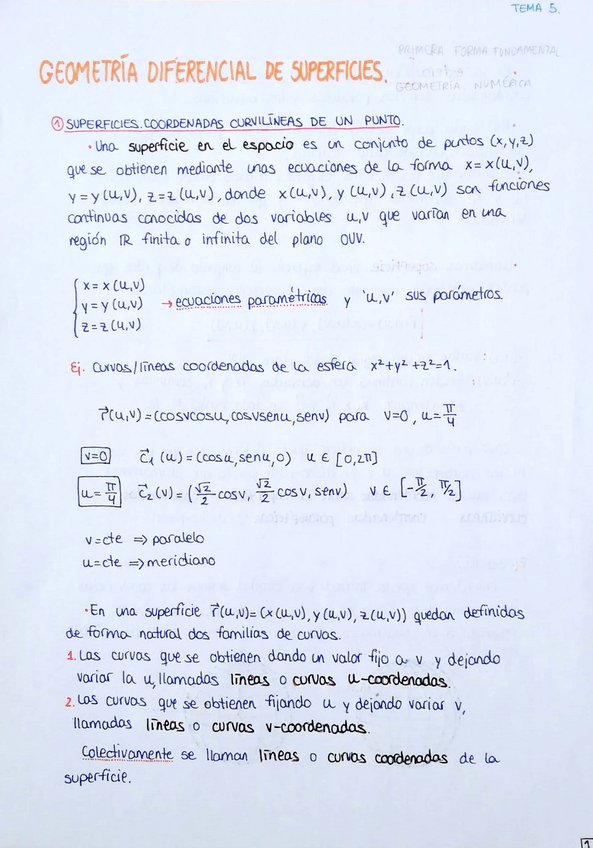 TEMA 5.
PRIMERA FORMA FUNDAMENTAL
GEOMETRÍA DIFERENCIAL DE SUPERFICIES.
GEOMETRÍA NUMÉRICA
① SUPERFICIES. COORDENADAS CURVILÍNEAS DE UN PUNTO.
• Una superficie en el espacio es un conjunto de puntos (x,y,z)
que se obtienen mediante unas ecuaciones de la forma x=x(u,v),
y=y(u,v), z=z(u,v), donde x(u,v), y(u,v), z(u,v) son funciones
continuas conocidas de dos variables u,v que varían en una
región ℝ finita o infinita del plano OUV.
x=x(u,v)
y=y(u,v) → ecuaciones paramétricas y 'u,v' sus parámetros.
z=z(u,v)
Ej. Curvas/líneas coordenadas de la esfera x²+y²+z²=1.
r⃗(u,v)=(cosvcosu, cosvsenu, senv) para v=0, u=π/4
v=0 c⃗₁(u)=(cosu, senu, 0) u ∈ [0,2π]
u=π/4 c⃗₂(v)=(√2/2 cosv, √2/2 cosv, senv) v ∈ [-π/2, π/2]
v=cte ⇒ paralelo
u=cte ⇒ meridiano
• En una superficie r⃗(u,v)=(x(u,v), y(u,v), z(u,v)) quedan definidas
de forma natural dos familias de curvas.
1. Las curvas que se obtienen dando un valor fijo a v y dejando
variar la u, llamadas líneas o curvas u-coordenadas.
2. Las curvas que se obtienen fijando u y dejando variar v,
llamadas líneas o curvas v-coordenadas.
Colectivamente se llaman líneas o curvas coordenadas de la
superficie.
1